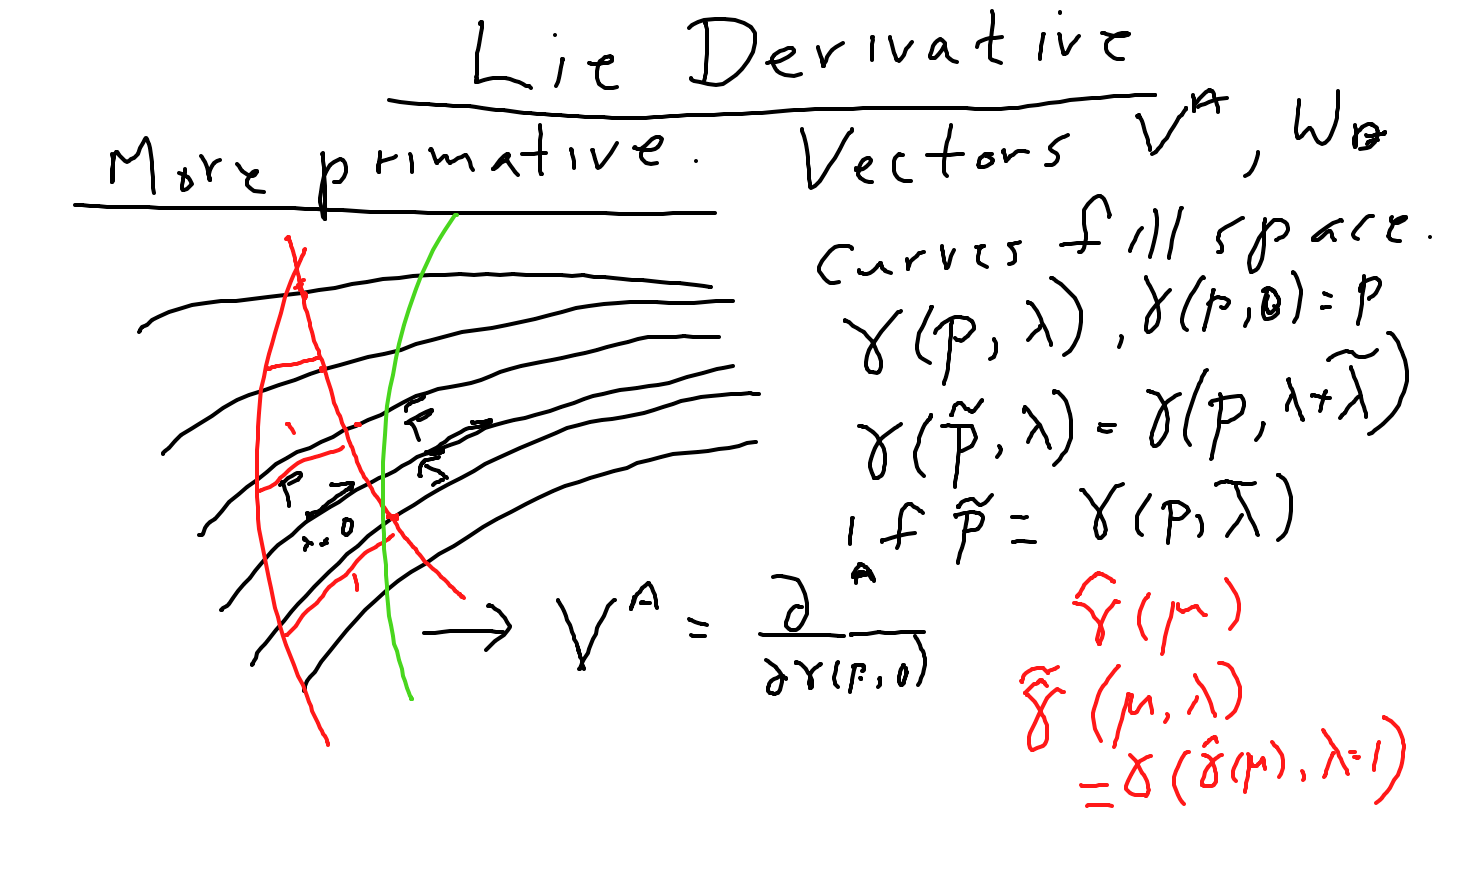 Lie Derivative
More primative.
Vectors V^A, W_B
Curves fill space.
γ(p, λ), γ(p, 0) = p
γ(p̃, λ) = γ(p, λ+λ̃)
if p̃ = γ(p, λ̃)
p̃
λ̃
p
λ=0
1
1
→ V^A = ∂^A / ∂γ(p, 0)
γ̂(μ)
γ̃(μ, λ)
= γ(γ̂(μ), λ=1)